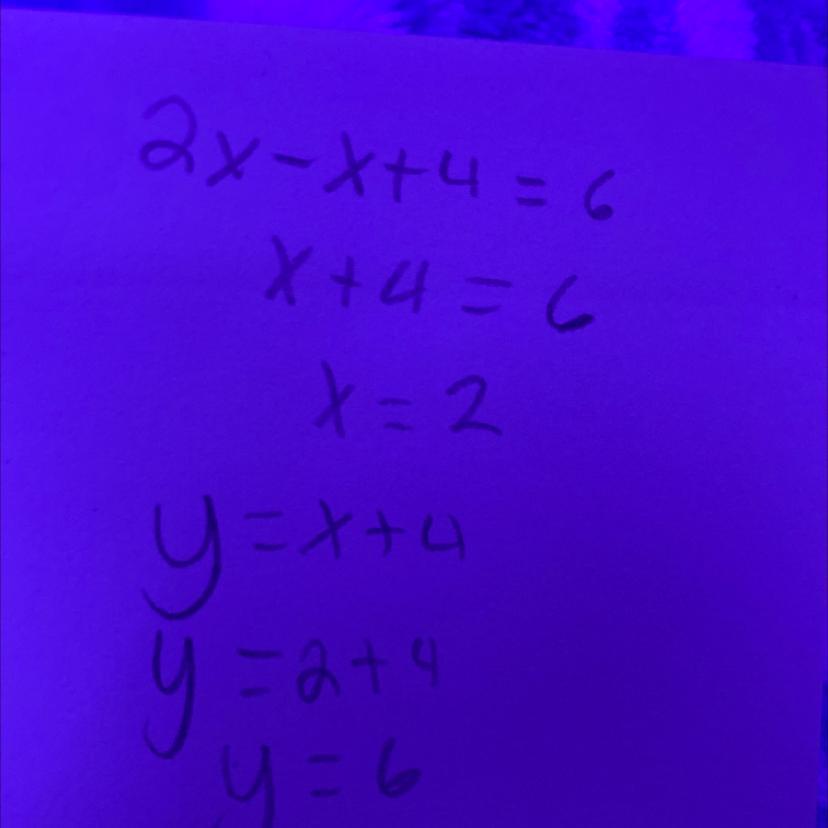 2x-x+4=6
x+4=6
x=2
y=x+4
y=2+4
y=6